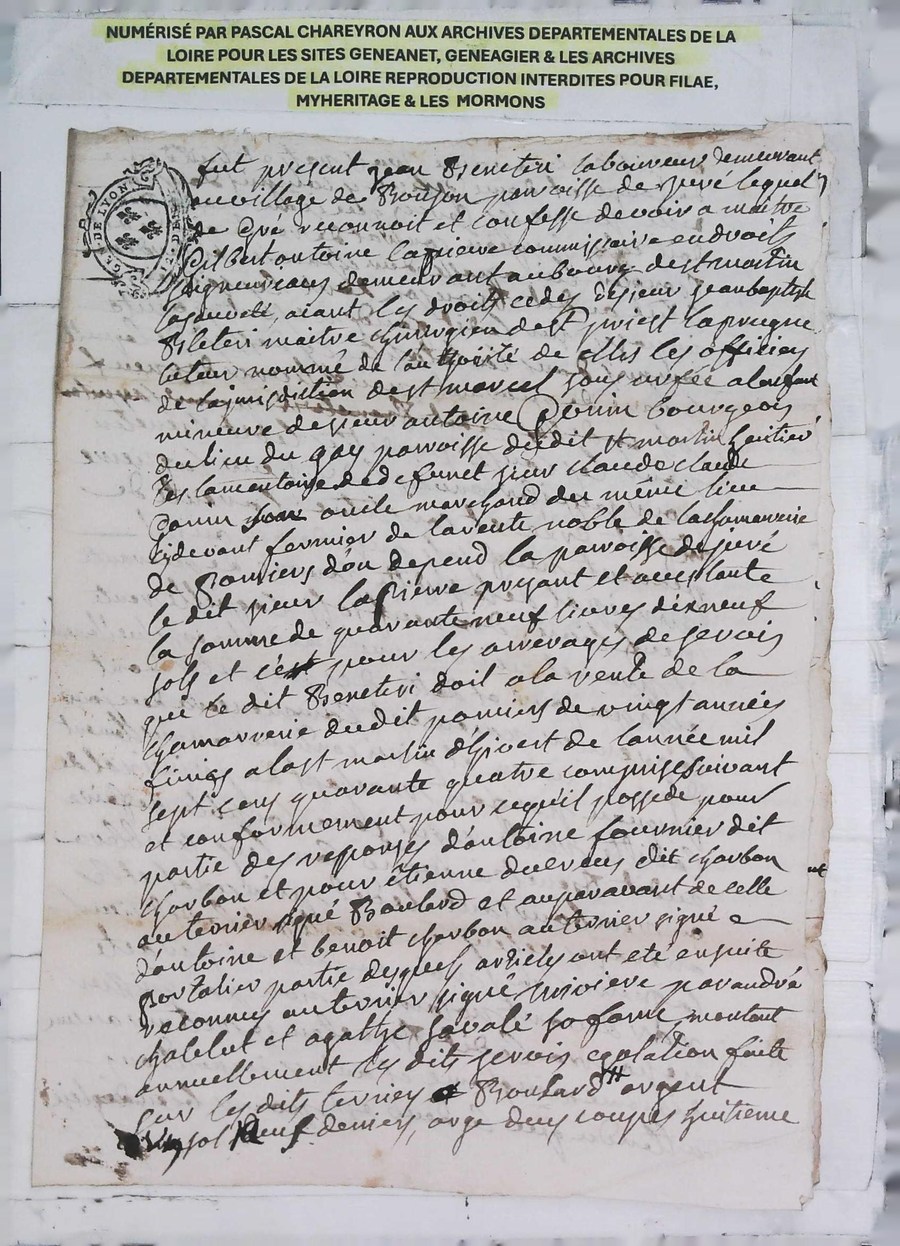 NUMÉRISÉ PAR PASCAL CHAREYRON AUX ARCHIVES DEPARTEMENTALES DE LA
LOIRE POUR LES SITES GENEANET, GENEAGIER & LES ARCHIVES
DEPARTEMENTALES DE LA LOIRE REPRODUCTION INTERDITES POUR FILAE,
MYHERITAGE & LES MORMONS
DE LYON
fut present jean Beneteri laboureur demeurant
au village de paroisse de juré lequel
de gré reconnoit et confesse devoir a maitre
Gilbert antoine lapierre commissaire en droits
seigneuriaux demeurant au bourg de st martin
la sauveté, aiant les droits cedes de sieur jean baptiste
maitre chirurgien de st priest laprugne
tuteur nommé de l'authorité de mrs les officiers
de la jurisdiction de st marcel sous urfée a
mineure de sieur antoine bourgeois
du lieu du gay paroisse dudit st martin heritier
testamentaire de defunct sieur claude claude
oncle marchand du même lieu
cydevant fermier de la rente noble de la chamarerie
de pomiers d'ou depend la paroisse de juré
le dit sieur lapierre presant et acceptante
la somme de quarante neuf livres dix neuf
sols et c'est pour les arrerages de servis
que le dit Beneteri doit a la rente de la
chamarrerie dudit pomiers de vingt années
finies a la st martin d'hivert de l'année mil
sept cens quarante quatre comprise suivant
et conformement pour ce qu'il possede pour
partie des reponses d'antoine fournier dit
charbon et pour étienne dit charbon
au terrier signé Boulard et auparavant de celle
d'antoine et benoit charbon au terrier signé
portalier partie desquels articles ont eté ensuite
reconnus au terrier signé riviere par andré
chatelut et agathe sa feme, montant
annuellement les dits servis egalation faite
sur les dits terriers Boulard argent
sol neuf deniers, orge deux coupes huitieme